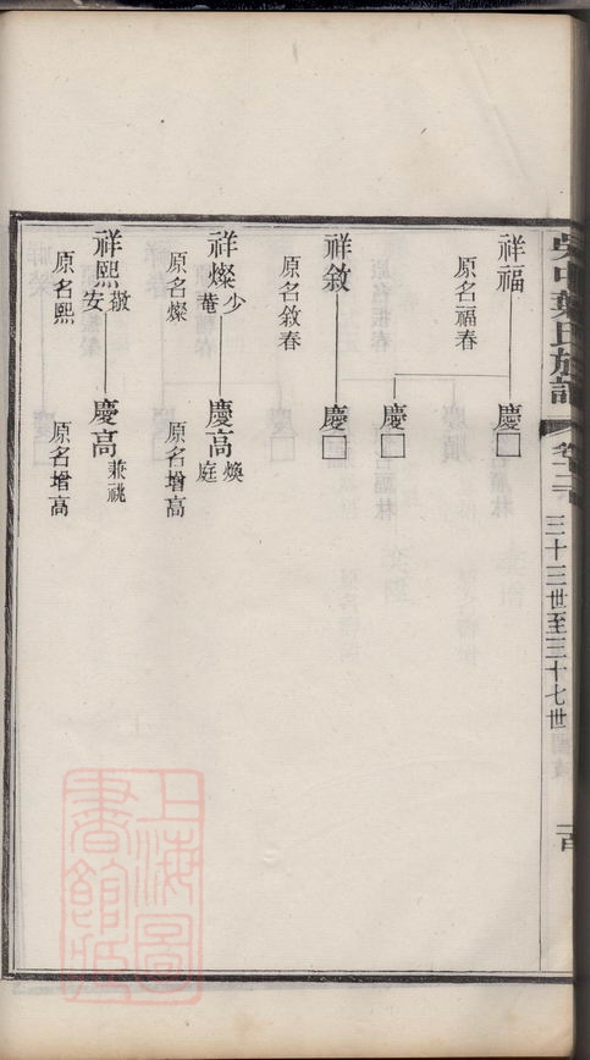 吳中葉氏族譜
三十三世至三十七世
百
祥福
原名福春
慶□
慶□
祥敘
原名敘春
慶□
祥燦
少菴
原名燦
慶高
煥庭
原名增高
祥熙
敬安
原名熙
慶高
兼祧
原名增高
上海圖書館藏